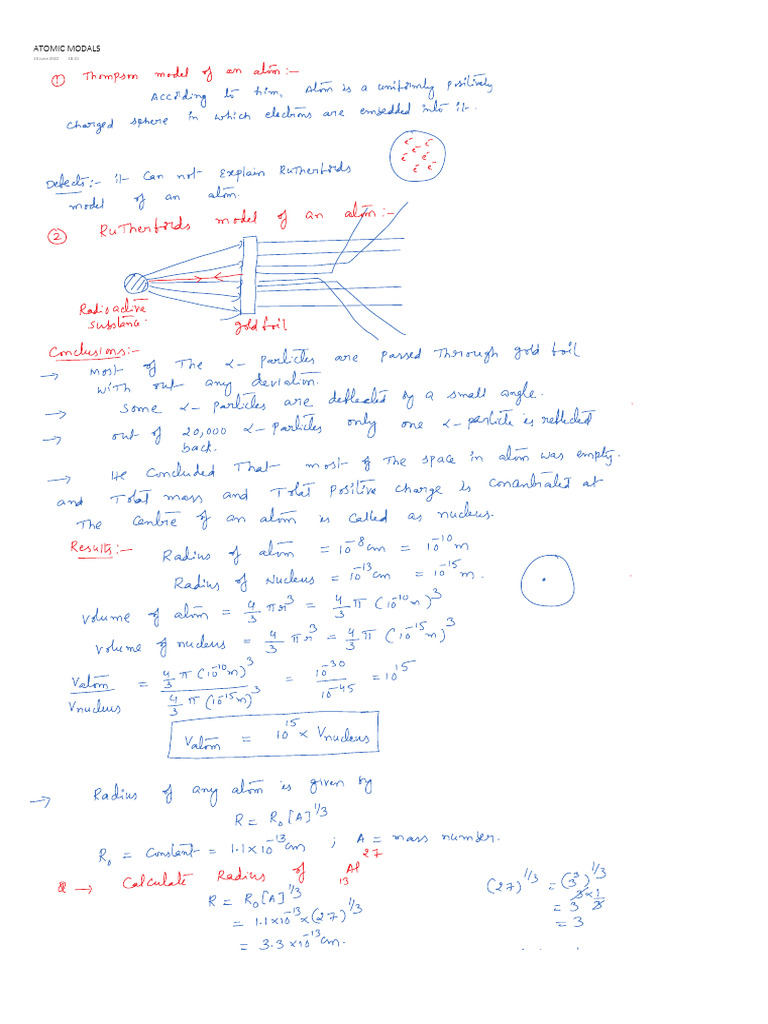 ATOMIC MODALS
① Thompson model of an atom:-
According to him, Atom is a uniformly positively
charged sphere in which electrons are embedded into it.
e⁻ e⁻
e⁻ e⁻
e⁻ e⁻
e⁻ e⁻
Defects:- it can not explain Rutherfords
model of an atom.
② Rutherfords model of an atom:-
Radioactive
substance
gold foil
Conclusions:-
→ Most of the α- particles are passed through gold foil
with out any deviation.
→ Some α- particles are deflected by a small angle.
→ out of 20,000 α- particles only one α- particle is reflected
back.
→ He concluded that most of the space in atom was empty.
and Total mass and Total positive charge is concentrated at
the centre of an atom is called as nucleus.
Results:- Radius of atom = 10⁻⁸cm = 10⁻¹⁰m
Radius of Nucleus = 10⁻¹³cm = 10⁻¹⁵m.
Volume of atom = 4/3 πr³ = 4/3 π (10⁻¹⁰m)³
Volume of nucleus = 4/3 πr³ = 4/3 π (10⁻¹⁵m)³
Vatom/Vnucleus = 4/3 π (10⁻¹⁰m)³ / 4/3 π (10⁻¹⁵m)³ = 10⁻³⁰/10⁻⁴⁵ = 10¹⁵
Vatom = 10¹⁵ × Vnucleus
→ Radius of any atom is given by
R = R₀ [A]^1/3
R₀ = Constant = 1.1×10⁻¹³cm ; A = mass number.
Q → Calculate Radius of ₁₃Al²⁷
R = R₀[A]^1/3
= 1.1×10⁻¹³×(27)^1/3
= 3.3×10⁻¹³cm.
(27)^1/3 = (3³)^1/3
= 3^3×1/3
= 3